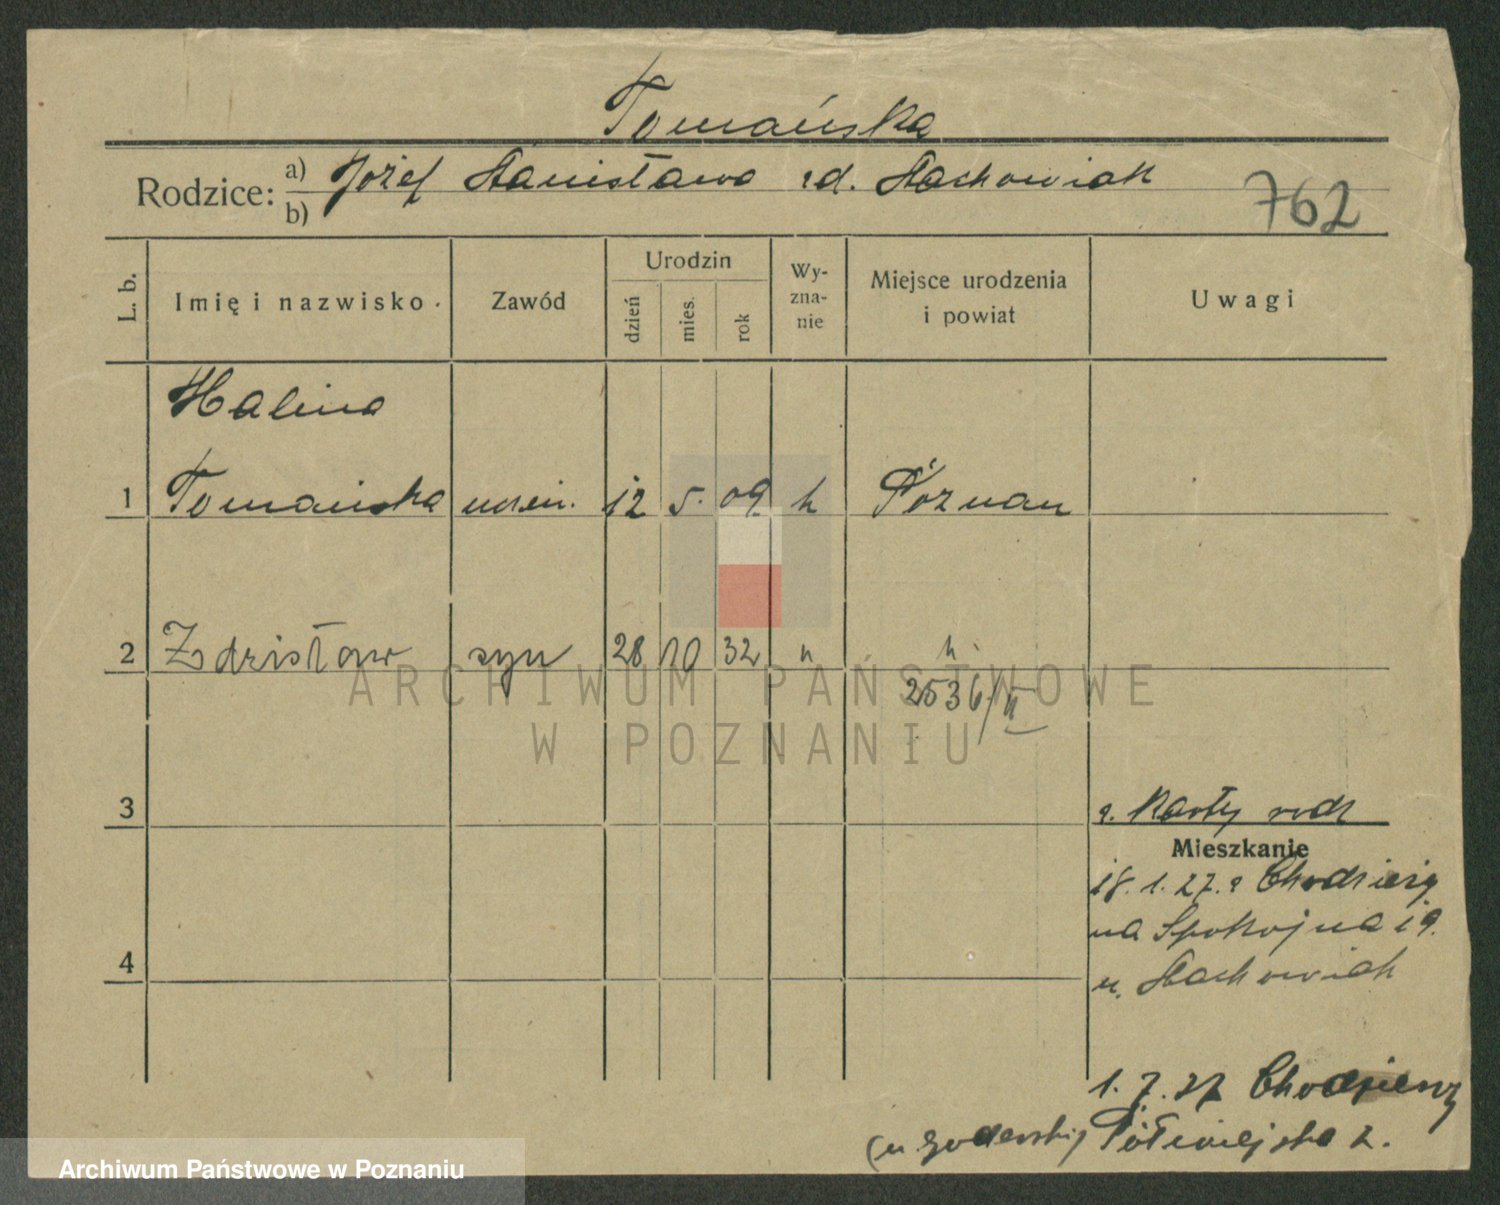 Tomańska
Rodzice: a) Józef Stanisława z d. Stachowiak
b)
762
L. b.
Imię i nazwisko
Zawód
Urodzin
dzień
mies.
rok
Wy-
zna-
nie
Miejsce urodzenia
i powiat
Uwagi
Halina
1 Tomańska uczen. 12 5. 09 k Poznań
2 Zdzisław syn 28 10 32 " "
2536/II
ARCHIWUM PAŃSTWOWE
W POZNANIU
3
z. Karty rodz
Mieszkanie
18. 1. 27. z Chodzieży
na Spokojna 19.
u. Stachowiak
4
1. 7. 27 Chodzieży
(u Półwiejska 2.
Archiwum Państwowe w Poznaniu